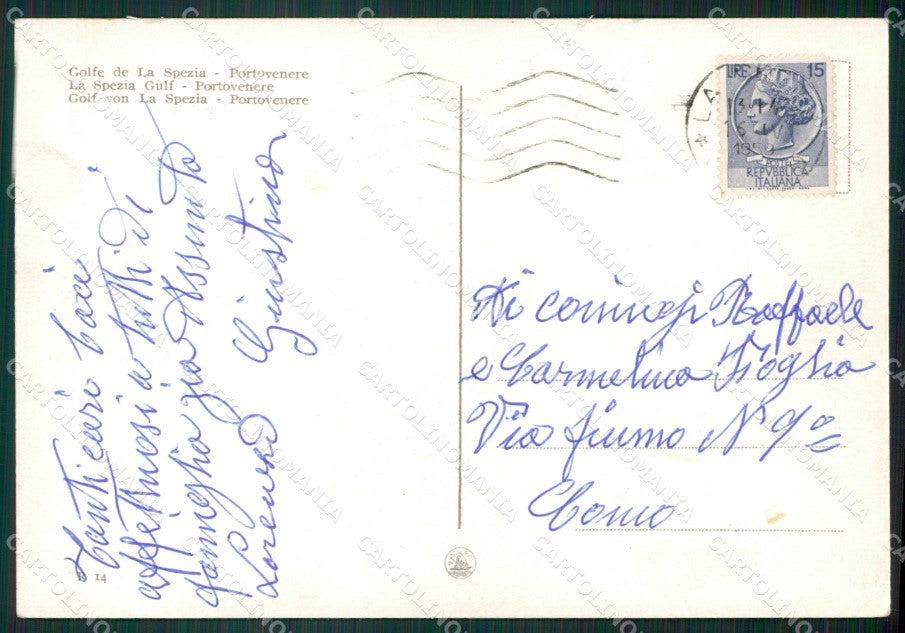 Golfe de La Spezia - Portovenere
La Spezia Gulf - Portovenere
Golf von La Spezia - Portovenere
Tanti cari baci
affettuosi a tutti di
famiglia zia Assunta
Lorenzo Giustina
R 14
LIRE 15
POSTE
REPVBBLICA
ITALIANA
LA
Ai coniugi Raffaele
e Carmelina Foglia
Via fiume N 9
Como
CARTOLINOMANIA